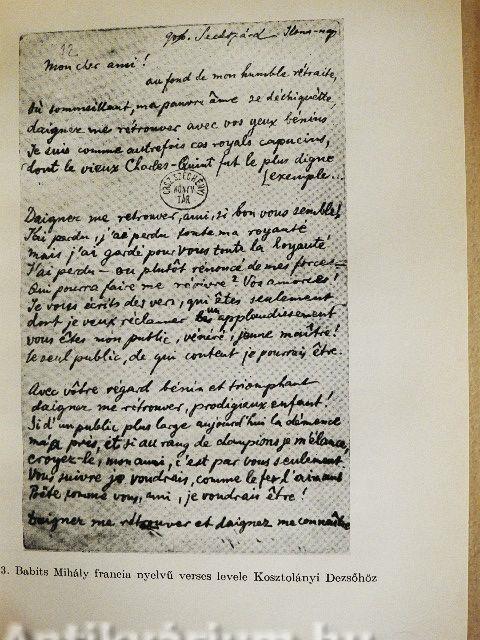 12
906. Szekszárd Ilona-nap
Mon cher ami!
au fond de mon humble rétraite,
Où sommeillant, ma pauvre âme se déchiquette
daignez me rétrouver avec vos yeux bénins
Je suis comme autrefois ces royals capucins,
dont le vieux Charles-Quint fut le plus digne
[exemple..
ORSZ. SZÉCHÉNYI
KÖNYV
TÁR
Daignez me retrouver, ami, si bon vous semble!
J'ai perdu, j'ai perdu toute ma royauté
mais j'ai gardé pour vous toute la loyauté
J'ai perdu – ou plutôt rénoncé de mes forces –
Qui pourra faire me révivre? Vos amorces!
Je vous écris des vers, qui êtes seulement
dont je veux réclamer un applaudissement
vous êtes mon public, vénéré, jeune maître!
le seul public, de qui content je pourrais être.
Avec vôtre regard bénin et triomphant
daignez me rétrouver, prodigieux enfant!
Si d'un public plus large aujourd'hui la démence
m'a pris, et si au rang de championsje m'élance,
croyez-le, mon ami, c'est par vous seulement.
Vous suivre je voudrais, comme le fer l'aimant
Poëte comme vous, ami, je voudrais être!
Daignez me rétrouver et daignez me connaître
3. Babits Mihály francia nyelvű verses levele Kosztolányi Dezsőhöz
Antikvárium.hu